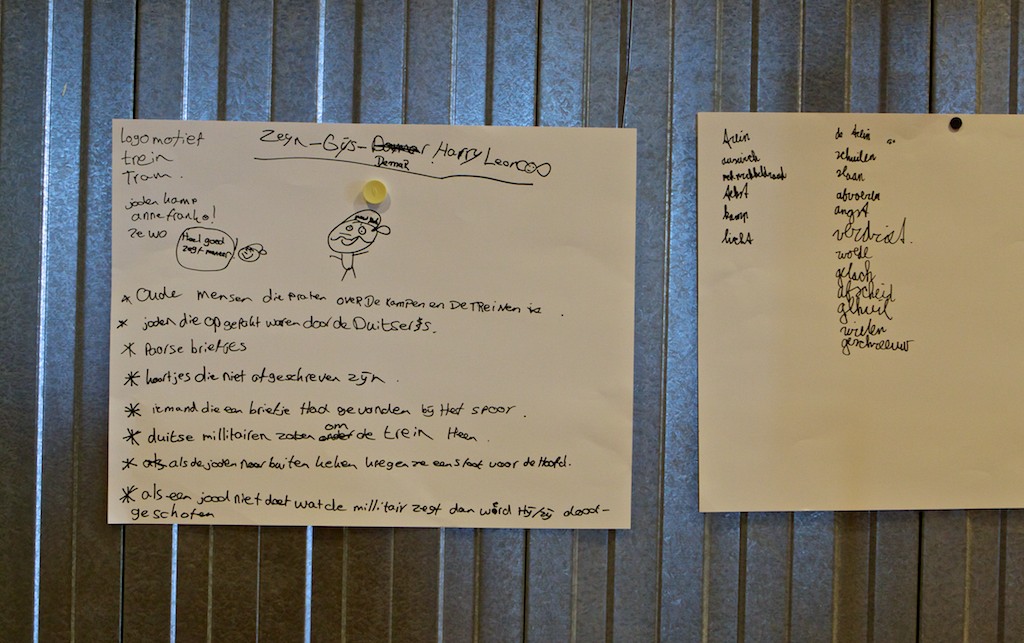 Logomotief
trein
Tram.
joden kamp
anne frank!
ze wo
Zeyn-Gijs- Harry Leon
Demar
Heel goed
zegt meneer
* Oude mensen die praten over De kampen en De Treinen
* joden die opgepakt waren door de Duitsers.
* Paarse briefjes
* kaartjes die niet afgeschreven zijn.
* iemand die een briefje Had gevonden bij Het spoor.
om
* duitse millitairen zaten de trein Heen.
* als de joden naar buiten keken kregen ze een s voor de Hoofd.
* als een jood niet doet wat de millitair zegt dan word Hij/zij dood-
geschoten
trein
tekst
kamp
licht
de trein
schuilen
slaan
afvoeren
angst
verdriet.
woede
afscheid
gehuil
wielen
geschreeuw